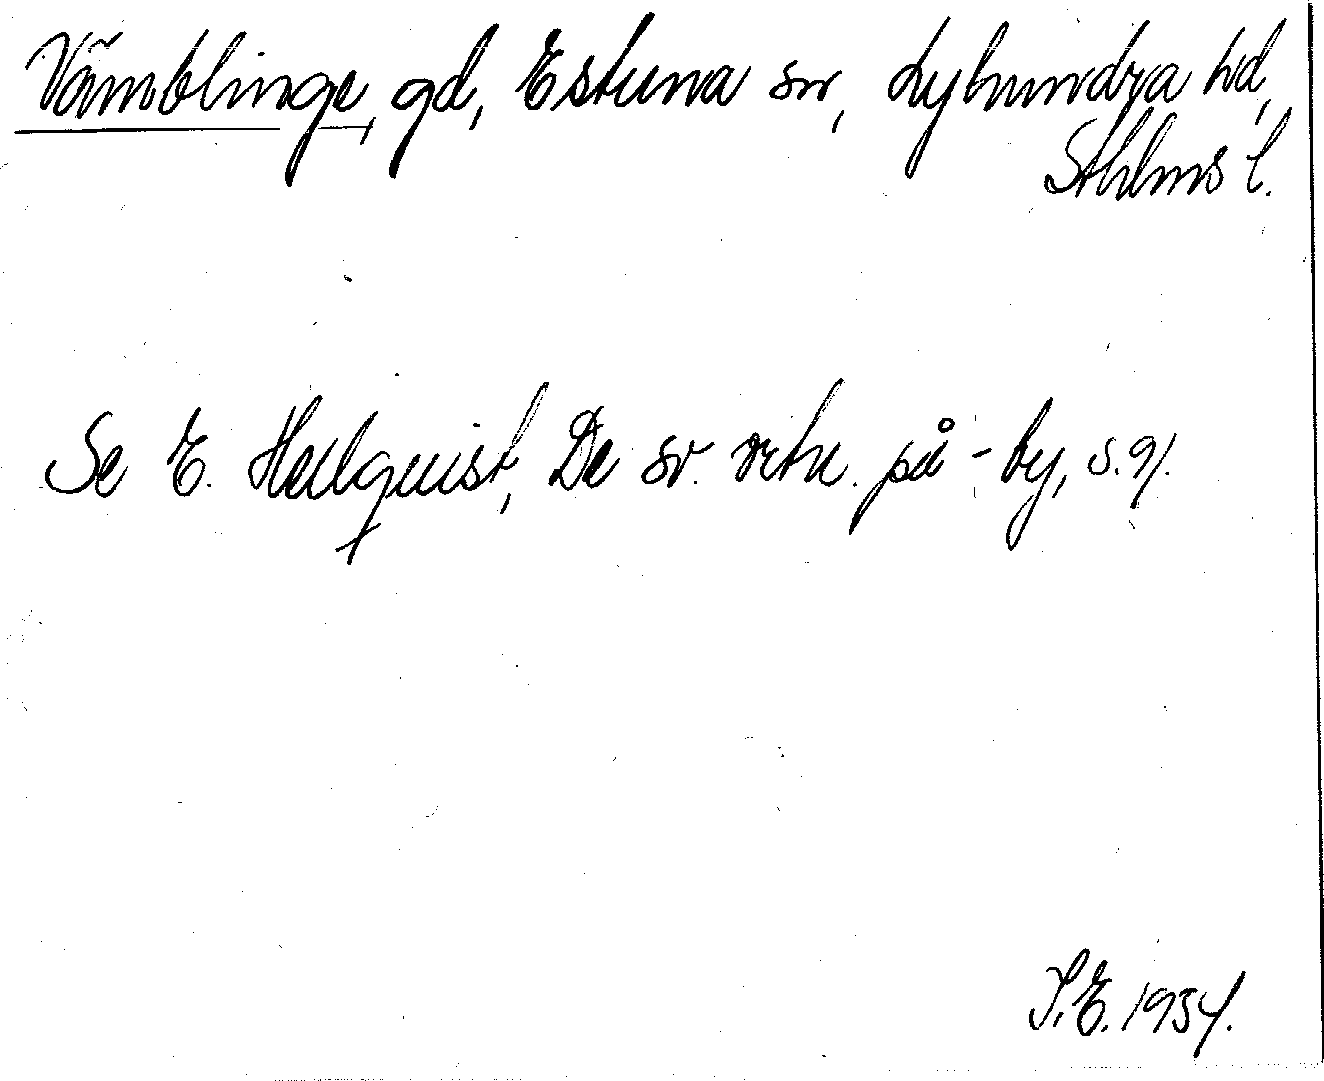 Vämblinge, gd, Estuna sn, Lyhundra hd,
Sthlms l.
Se E. Hellquist, De sv. ortn. på -by, s. 91.
S.E. 1954.